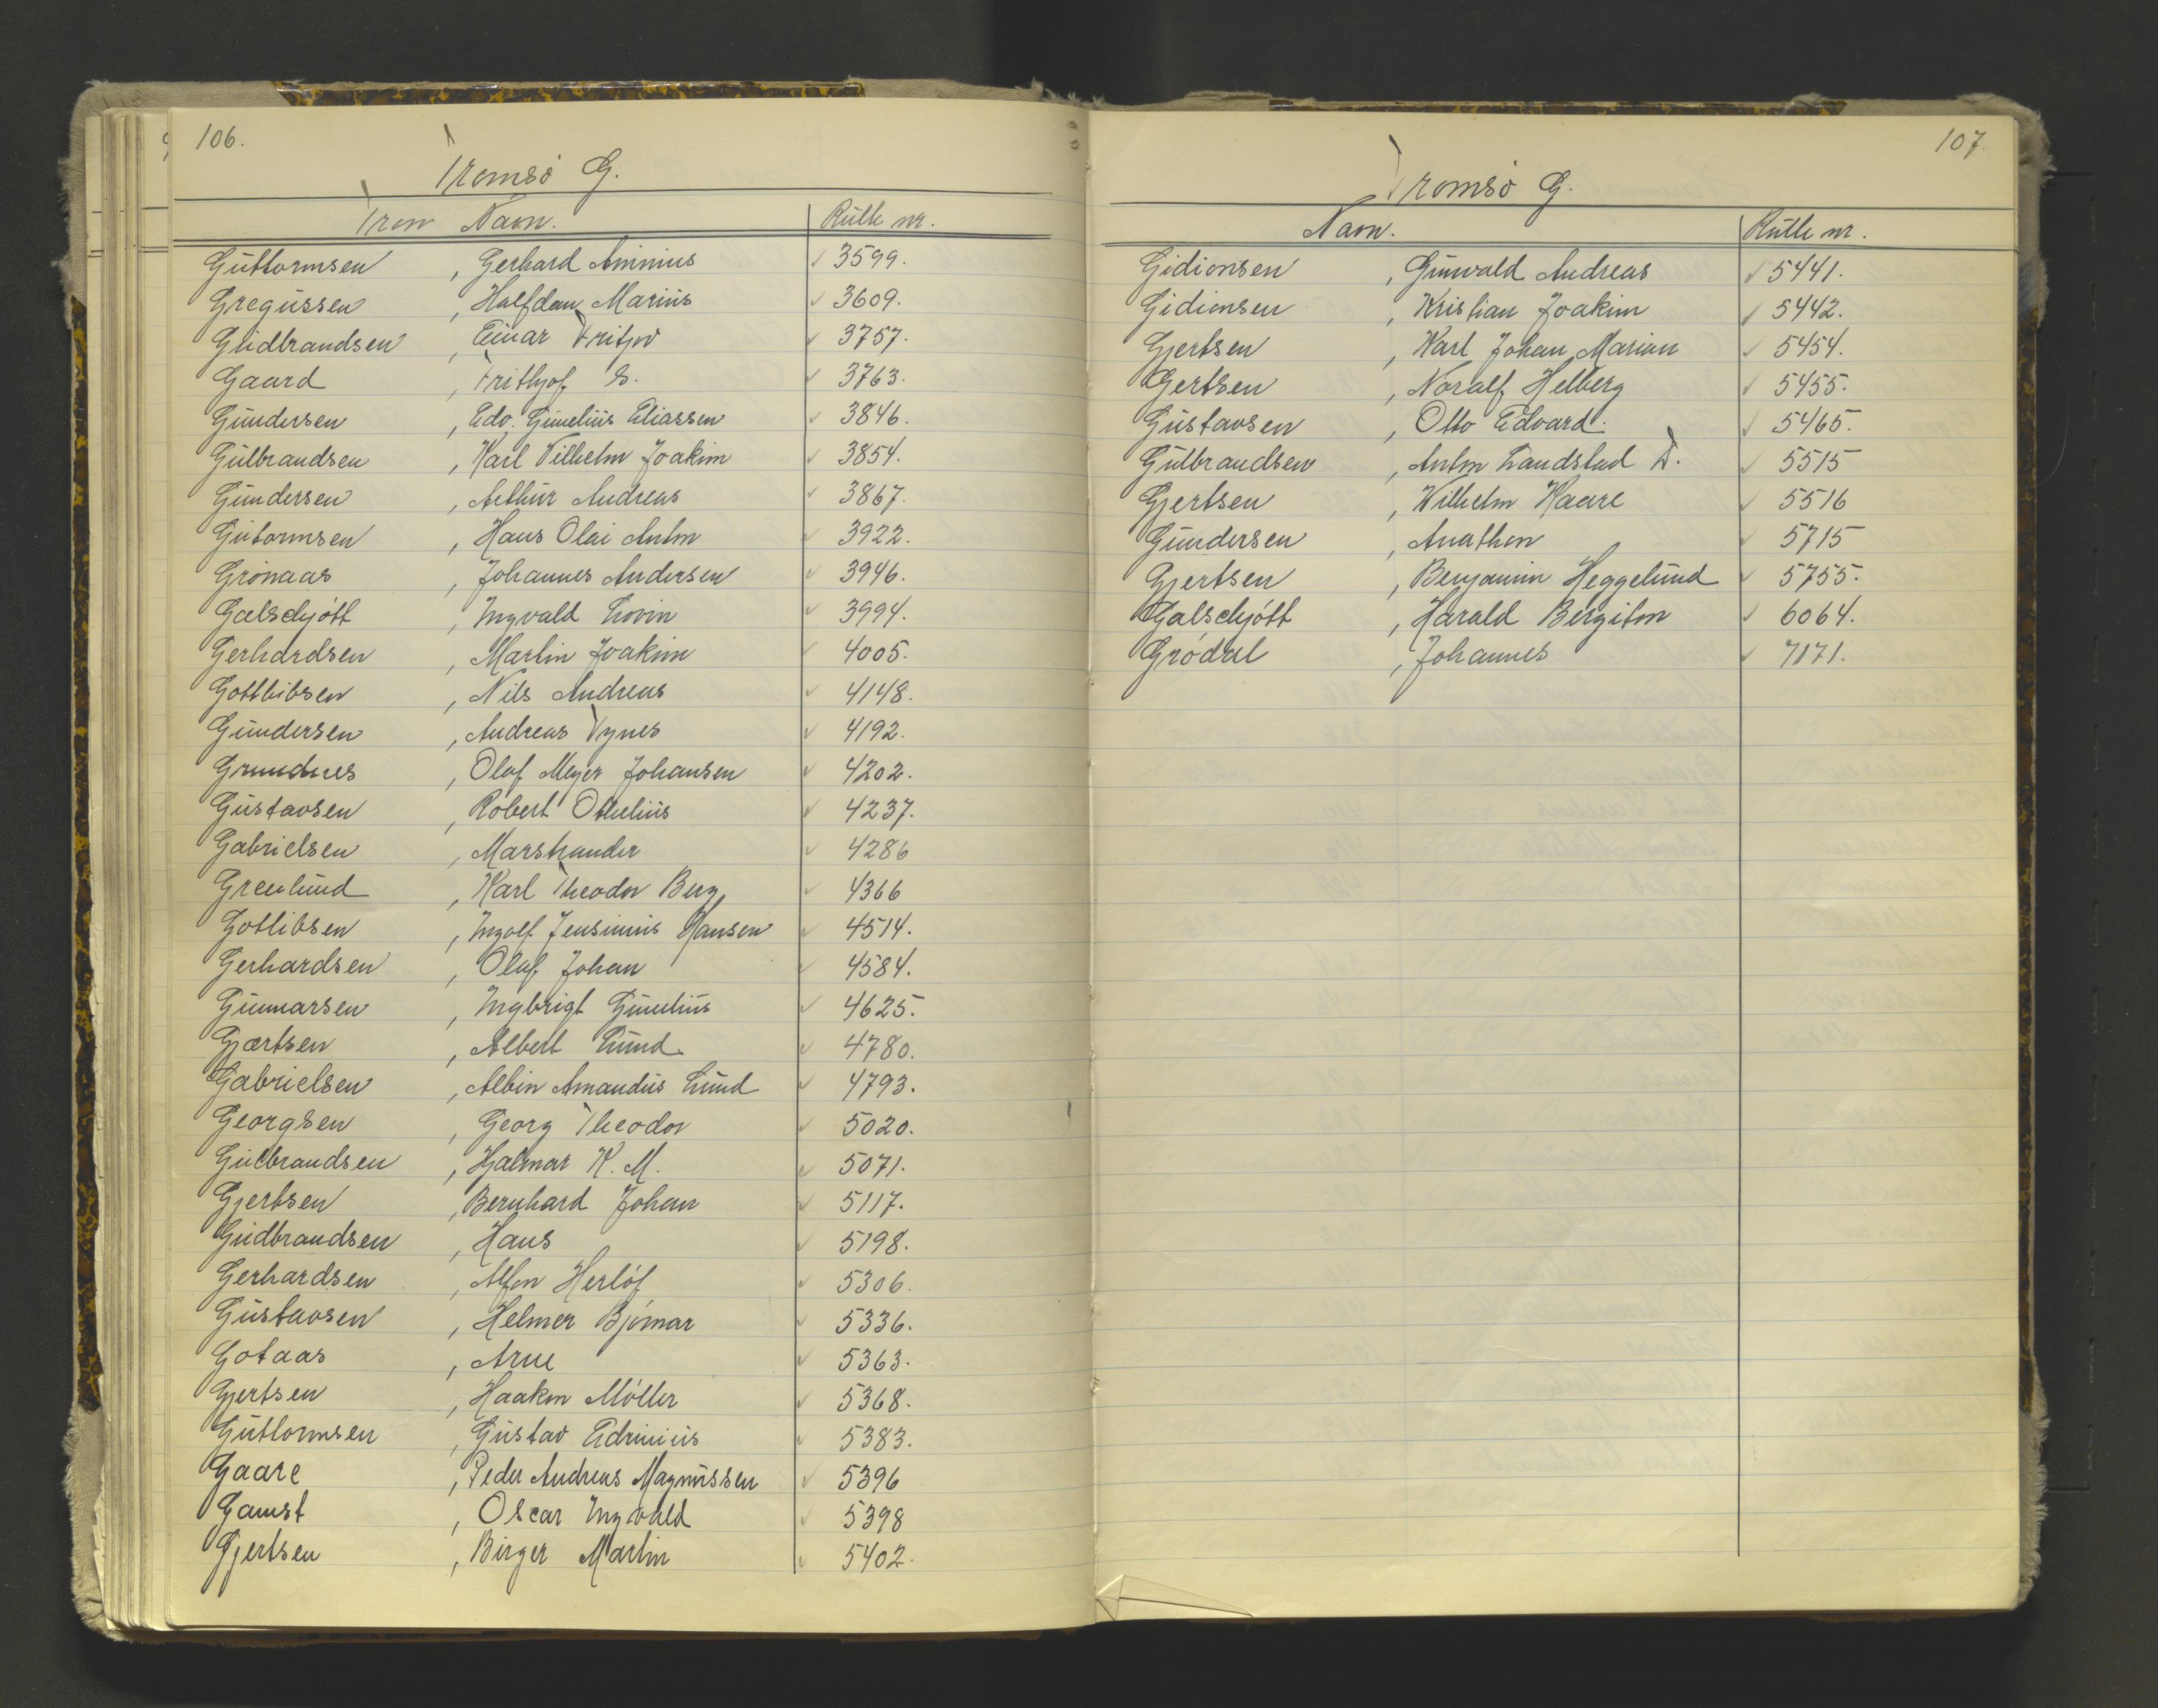 106.
Tromsö G.
Trom Navn. Rulle nr.
Guttormsen, Gerhard Aminius 3599.
Gregussen, Halfdan Marius 3609.
Gudbrandsen, Einar Fritjov 3757.
Gaard, Frithjof S. 3763.
Gundersen, Edv. Gunelius Eliassen 3846.
Gulbrandsen, Karl Vilhelm Joakim 3854.
Gundersen, Arthur Andreas 3867.
Gutormsen, Hans Olai Anton 3922.
Grönaas, Johannes Andersen 3946.
Galschjött, Ingvald Lovin 3994.
Gerhardsen, Martin Joakim 4005.
Gottlibsen, Nils Andreas 4148.
Gundersen, Andreas Tynes 4192.
Grundnes, Olaf Meyer Johansen 4202.
Gustavsen, Robert Othelius 4237.
Gabrielsen, Marstrander 4286
Grenlund, Karl Theodor Berg 4366
Gotlibsen, Ingolf Jensinius Hansen 4514.
Gerhardsen, Olaf Johan 4584.
Gunnarsen, Ingbrigt Gunelius 4625.
Gjærtsen, Albert Lund 4780.
Gabrielsen, Albin Amandus Lund 4793.
Georgsen, Georg Theodor 5020.
Gulbrandsen, Hjalmar K. M. 5071.
Gjertsen, Bernhard Johan 5117.
Gudbrandsen, Hans 5198.
Gerhardsen, Alfon Herlöf 5306.
Gustavsen, Helmer Bjömar 5336.
Gotaas, Arne 5363.
Gjertsen, Haakon Möller 5368.
Guttormsen, Gustav Edminius 5383.
Gaare, Peder Andreas Magnussen 5396
Gamst, Oscar Ingvald 5398
Gjertsen, Birger Martin 5402.
107.
Tromsö G.
Navn. Rulle nr.
Gidionsen, Gunvald Andreas 5441.
Gidionsen, Kristian Joakim 5442.
Gjertsen, Karl Johan Marian 5454.
Gertsen, Noralf Helberg 5455.
Gustavsen, Otto Edvard. 5465.
Gulbrandsen, Anton Landstad T. 5515
Gjertsen, Wilhelm Kaare 5516
Gundersen, Anathon 5715
Gjertsen, Benjamin Heggelund 5755.
Galschjött, Harald Bergiton 6064.
Grödal, Johannes 7171.